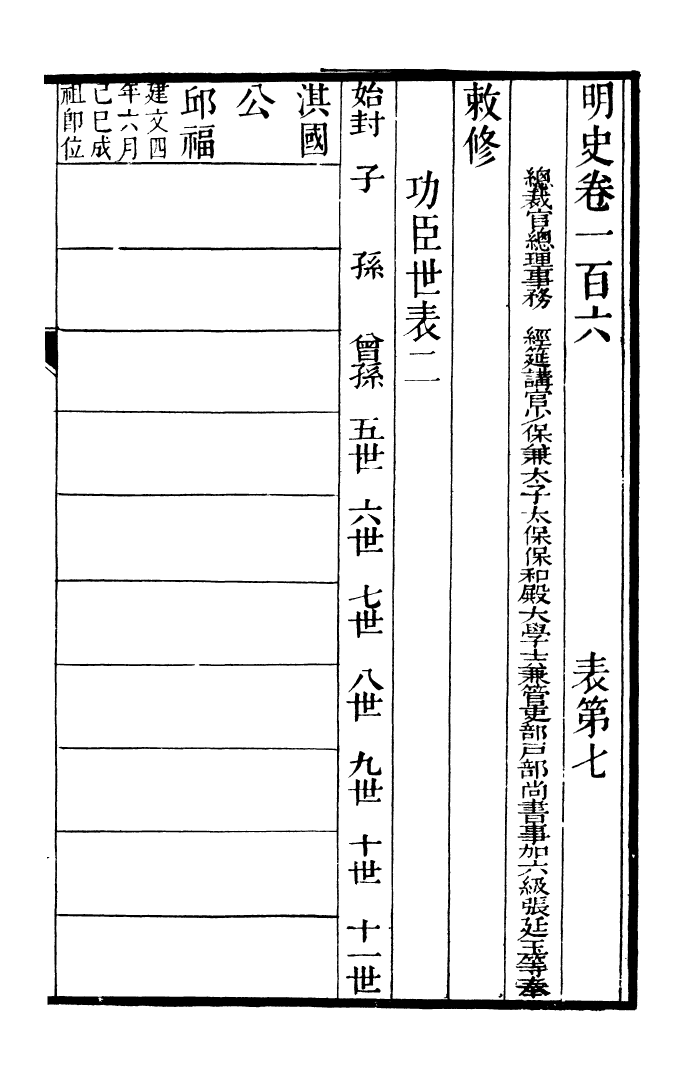 明史卷一百六　表第七
總裁官總理事務　經筵講官少保兼太子太保保和殿大學士兼管吏部戶部尚書事加六級張廷玉等奉
敕修
功臣世表二
始封　子　孫　曾孫　五世　六世　七世　八世　九世　十世　十一世
淇國
公
邱福
建文四
年六月
己巳成
祖即位